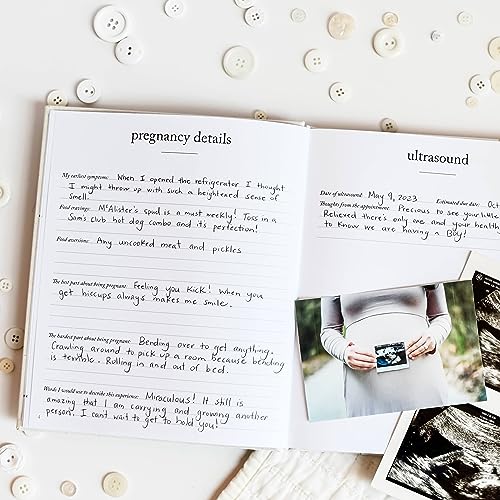 pregnancy details
My earliest symptoms: When I opened the refrigerator I thought
I might throw up with such a heightened sense of
smell.
Food cravings: McAlister's spud is a must weekly! Toss in a
Sam's club hot dog combo and its perfection!
Food aversions: Any uncooked meat and pickles
The best part about being pregnant: Feeling you Kick! When you
get hiccups always makes me smile.
The hardest part about being pregnant: Bending over to get anything.
Crawling around to pick up a room because bending
is terrible. Rolling in and out of bed.
Words I would use to describe this experience: Miraculous! It still is
amazing that I am carrying and growing another
person. I can't wait to get to hold you!
ultrasound
Date of ultrasound: May 9, 2023 Estimated due date: Oct
Thoughts from the appointment: Precious to see your little
Relieved there's only one and your health
to Know we are having a Boy!